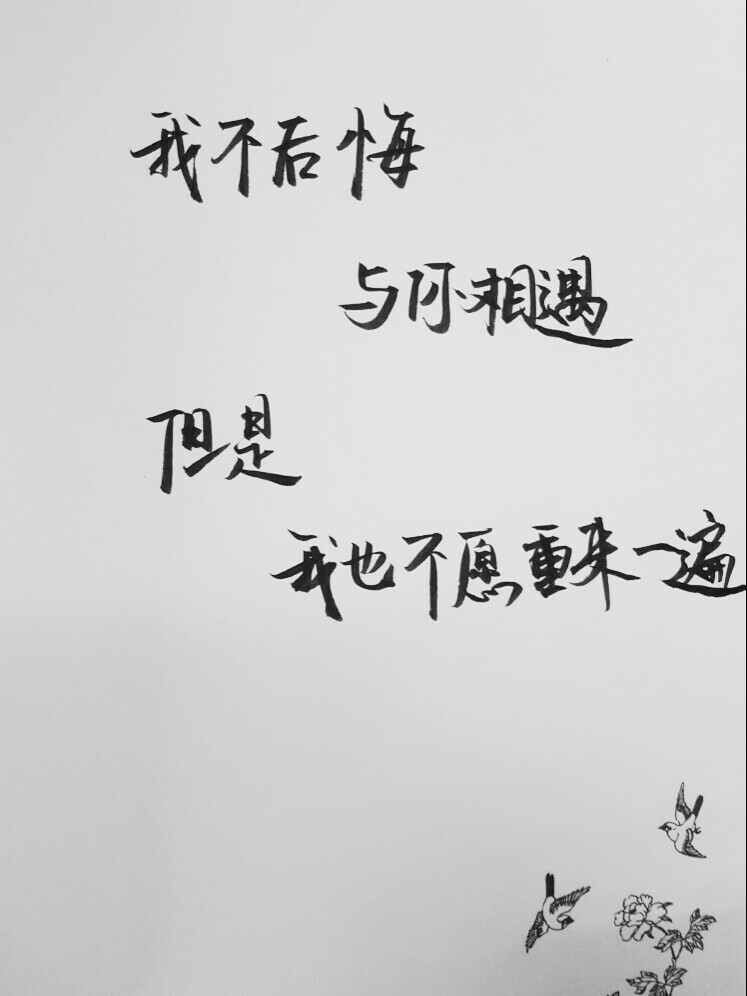 我不后悔
与你相遇
但是
我也不愿重来一遍